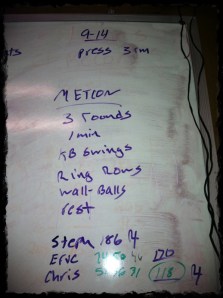 9-14
press 3rm
METCON
3 rounds
1 min
KB swings
Ring Rows
Wall-Balls
rest
Steph 186
Eric 120
Chris 71 118